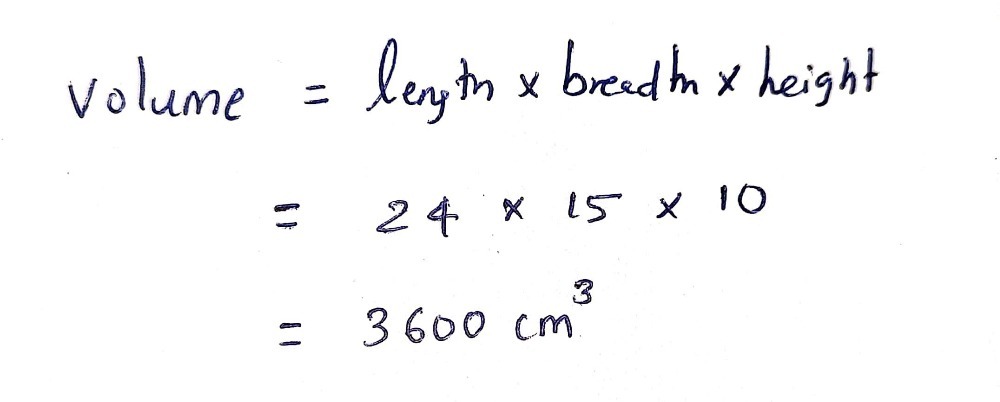 Volume = length x breadth x height
= 24 x 15 x 10
= 3600 cm³